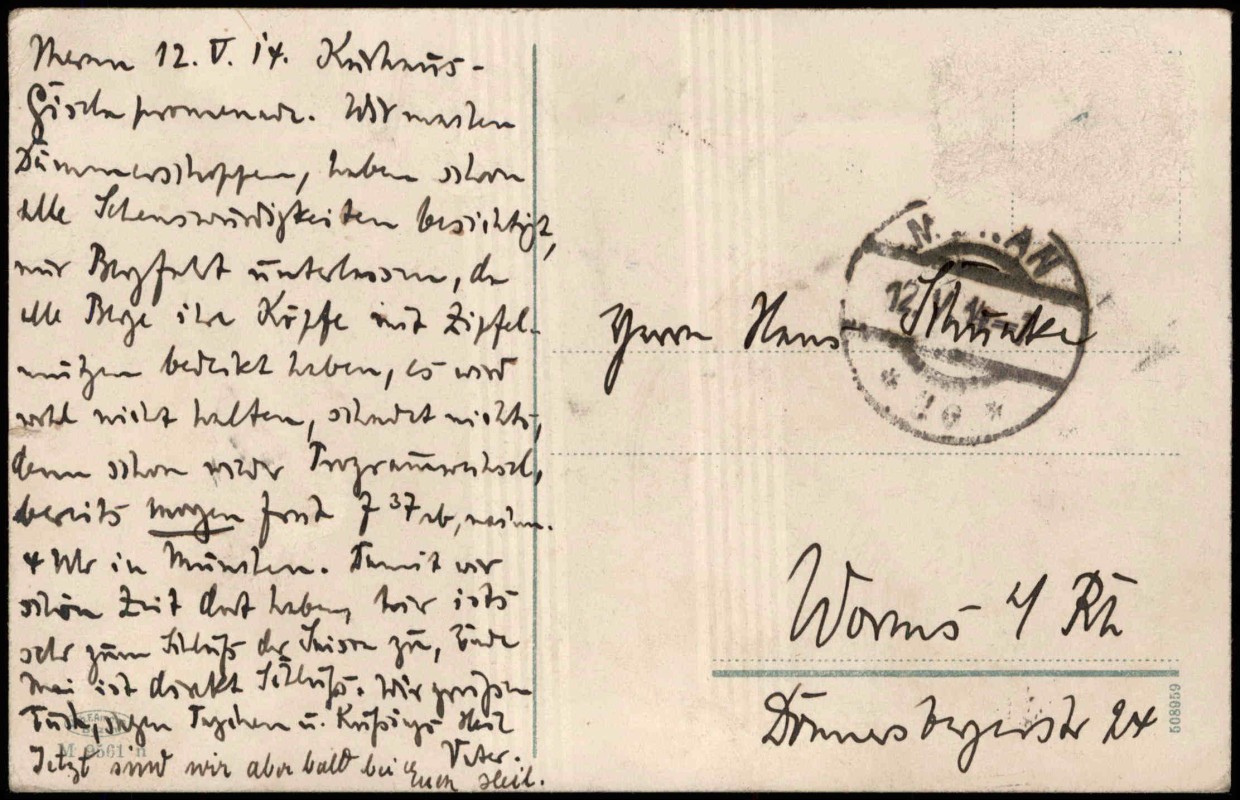 Meran 12. V. 14. Kurhaus-
Giselapromenade. Wir machen
Dämmerschoppen, haben schon
alle Sehenswürdigkeiten besichtigt,
nur Bergfahrt unterlassen, da
alle Berge ihre Köpfe mit Zipfel-
mützen bedeckt haben, es wird
wohl nicht halten, schadet nichts,
denn schon wieder Programmwechsel,
bereits morgen früh 7 37 ab, nachm.
4 Uhr in München. Damit wir
schön Zeit dort haben, hier ists
sehr zum Schluß der Saison zu, Ende
Mai ist direkt Schluß. Wir grüßen
Euch, sagen u. Heil
Vater.
Jetzt sind wir aber bald bei Euch Heil.
M 9561 n
M...AN
12. V. 14
* 2e *
Herrn Hans
Worms a/ Rh
Donnersbergerstr 24
508959